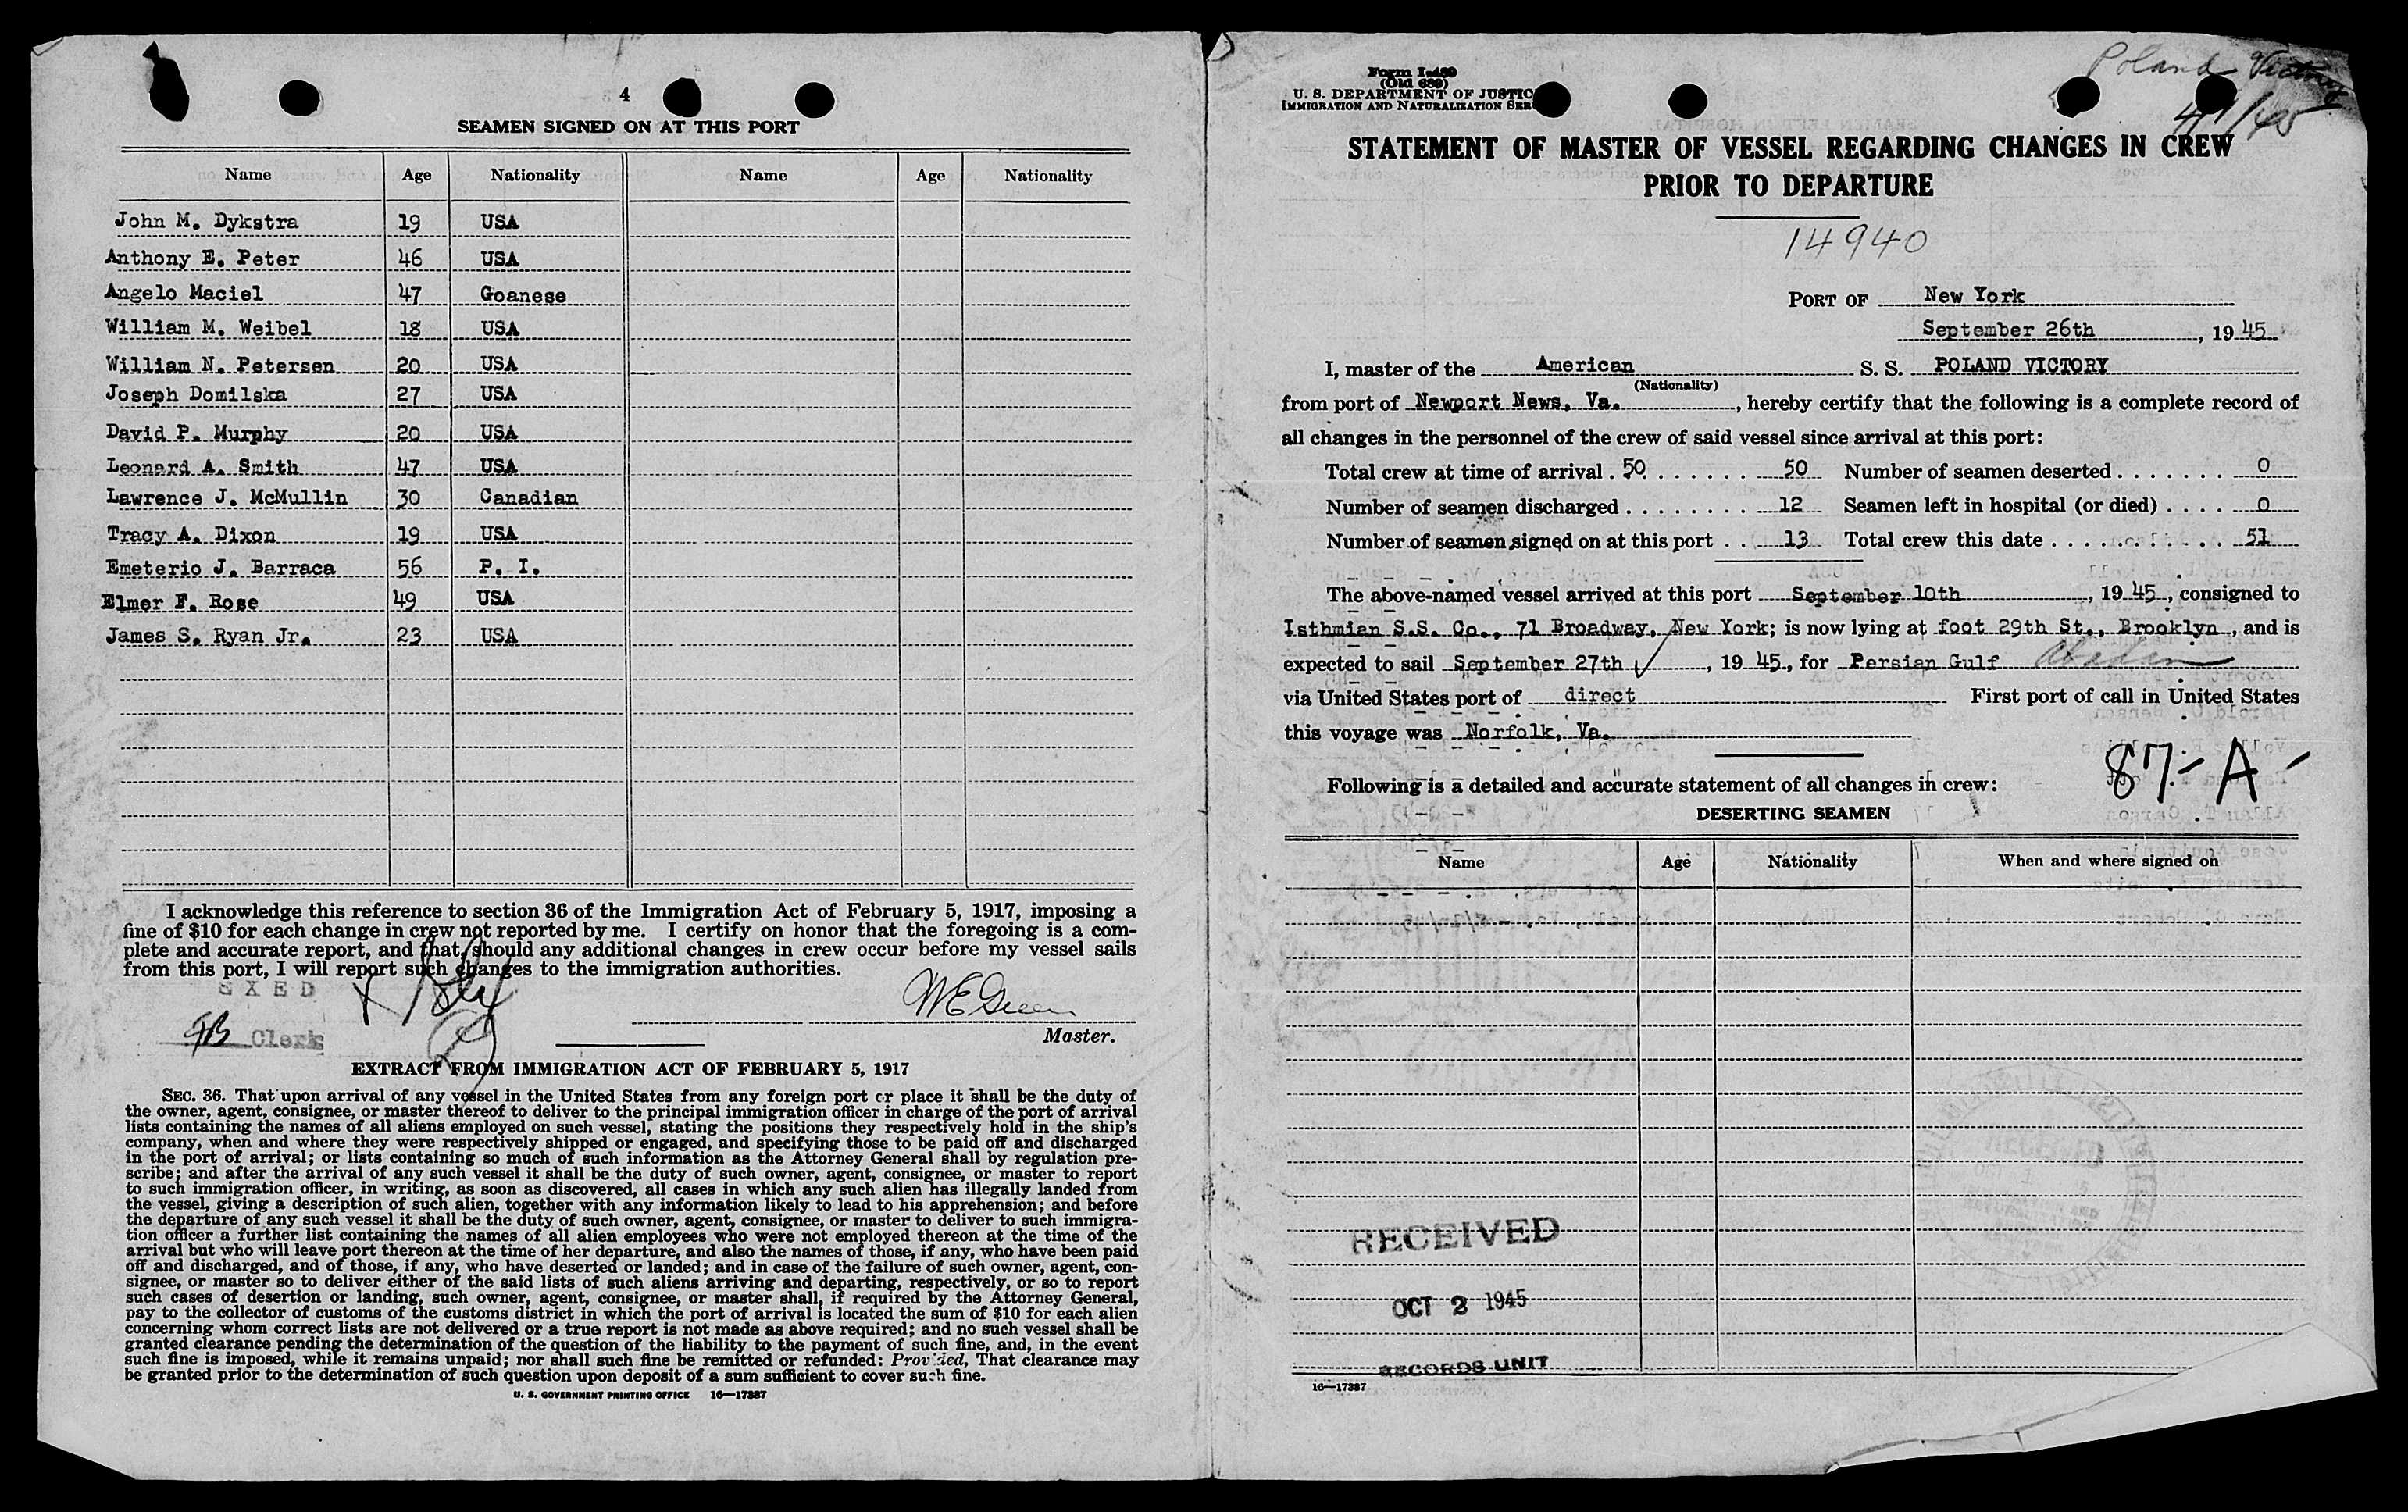 4
SEAMEN SIGNED ON AT THIS PORT
Name Age Nationality Name Age Nationality
John M. Dykstra 19 USA
Anthony E. Peter 46 USA
Angelo Maciel 47 Goanese
William M. Weibel 18 USA
William N. Petersen 20 USA
Joseph Domilska 27 USA
David P. Murphy 20 USA
Leonard A. Smith 47 USA
Lawrence J. McMullin 30 Canadian
Tracy A. Dixon 19 USA
Emeterio J. Barraca 56 P. I.
Elmer F. Rose 49 USA
James S. Ryan Jr. 23 USA
I acknowledge this reference to section 36 of the Immigration Act of February 5, 1917, imposing a
fine of $10 for each change in crew not reported by me. I certify on honor that the foregoing is a com-
plete and accurate report, and that should any additional changes in crew occur before my vessel sails
from this port, I will report such changes to the immigration authorities.
EXED
Clerk
Master.
EXTRACT FROM IMMIGRATION ACT OF FEBRUARY 5, 1917
SEC. 36. That upon arrival of any vessel in the United States from any foreign port or place it shall be the duty of
the owner, agent, consignee, or master thereof to deliver to the principal immigration officer in charge of the port of arrival
lists containing the names of all aliens employed on such vessel, stating the positions they respectively hold in the ship's
company, when and where they were respectively shipped or engaged, and specifying those to be paid off and discharged
in the port of arrival; or lists containing so much of such information as the Attorney General shall by regulation pre-
scribe; and after the arrival of any such vessel it shall be the duty of such owner, agent, consignee, or master to report
to such immigration officer, in writing, as soon as discovered, all cases in which any such alien has illegally landed from
the vessel, giving a description of such alien, together with any information likely to lead to his apprehension; and before
the departure of any such vessel it shall be the duty of such owner, agent, consignee, or master to deliver to such immigra-
tion officer a further list containing the names of all alien employees who were not employed thereon at the time of the
arrival but who will leave port thereon at the time of her departure, and also the names of those, if any, who have been paid
off and discharged, and of those, if any, who have deserted or landed; and in case of the failure of such owner, agent, con-
signee, or master so to deliver either of the said lists of such aliens arriving and departing, respectively, or so to report
such cases of desertion or landing, such owner, agent, consignee, or master shall, if required by the Attorney General,
pay to the collector of customs of the customs district in which the port of arrival is located the sum of $10 for each alien
concerning whom correct lists are not delivered or a true report is not made as above required; and no such vessel shall be
granted clearance pending the determination of the question of the liability to the payment of such fine, and, in the event
such fine is imposed, while it remains unpaid; nor shall such fine be remitted or refunded: Provided, That clearance may
be granted prior to the determination of such question upon deposit of a sum sufficient to cover such fine.
U. S. GOVERNMENT PRINTING OFFICE 16—17387
Form I-489
(Old 689)
U. S. DEPARTMENT OF JUSTIC
IMMIGRATION AND NATURALIZATION SER
Poland Victory
STATEMENT OF MASTER OF VESSEL REGARDING CHANGES IN CREW
PRIOR TO DEPARTURE
14940
PORT OF New York
September 26th, 1945
I, master of the American S. S. POLAND VICTORY
(Nationality)
from port of Newport News, Va., hereby certify that the following is a complete record of
all changes in the personnel of the crew of said vessel since arrival at this port:
Total crew at time of arrival . 50 . . . . . . . 50 Number of seamen deserted . . . . . . . 0
Number of seamen discharged . . . . . . . . 12 Seamen left in hospital (or died) . . . . 0
Number of seamen signed on at this port . . 13 Total crew this date . . . . . . . . . . 51
The above-named vessel arrived at this port September 10th, 1945, consigned to
Isthmian S.S. Co., 71 Broadway, New York; is now lying at foot 29th St., Brooklyn, and is
expected to sail September 27th, 1945, for Persian Gulf Abadan
via United States port of direct First port of call in United States
this voyage was Norfolk, Va.
87-A-
Following is a detailed and accurate statement of all changes in crew:
DESERTING SEAMEN
Name Age Nationality When and where signed on
RECEIVED
OCT 2 1945
RECORDS UNIT
16—17387